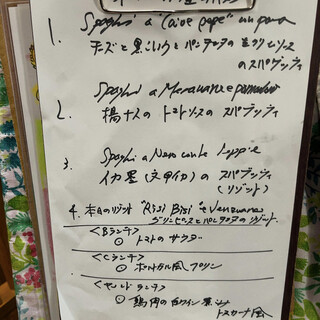 1. Spaghi a "Caçio pepe" 
チーズと黒こしょうとパンチェッタの生クリームソース
のスパゲッティ
2. Spaghi a Melanzane e pomodoro
揚ナスのトマトソースのスパゲッティ
3. Spaghi a Nero con le Seppie
イカ墨(文甲イカ)の スパゲッティ
(リゾット)
4. 本日のリゾット "Risi Bisi"
グリンピースとパンチェッタのリゾート
<Bランチ>
○ トマトのサラダ
<Cランチ>
○ ポルトガル風プリン
ランチ>
○ 鶏肉の白ワイン煮込
トスカーナ風